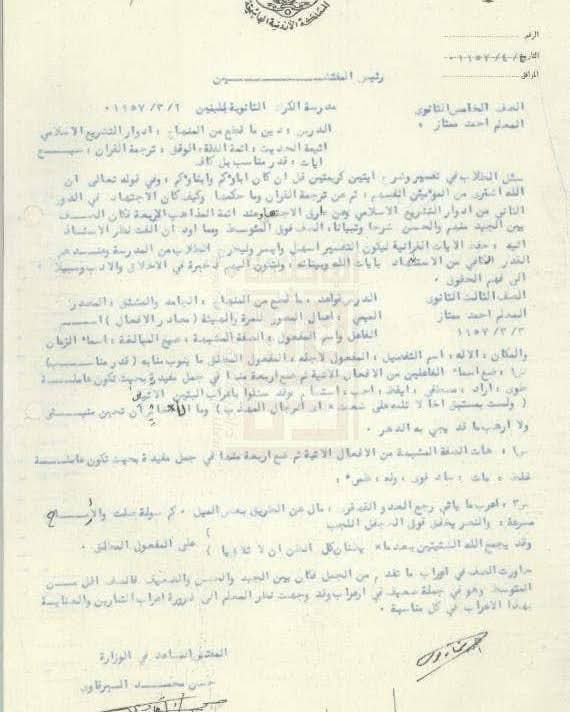 المملكة الأردنية الهاشمية
الرقم
التاريخ ١١٥٧/٤/
المرافق
رئيس المفتشين
الصف الخامس الثانوي مدرسة الكرك الثانوية للبنين ١١٥٧/٣/٢
المعلم احمد ممتاز الدرس : دين ما قطع من المنهاج : ادوار التشريع الاسلامي
ائمة الحديث : ائمة الفقه : الوقف ، ترجمة القران : سبع
ايات : قدر مناسب بل كاف
سئل الطلاب في تفسير وشرح ايتين كريمتين قل ان كان اباؤكم وابناؤكم ، وفي قوله تعالى ان
الله اشترى من المؤمنين انفسهم ، ثم عن ترجمة القران وما حكمها وكيف كان الاجتهاد في الدور
الثاني من ادوار التشريع الاسلامي وعن طرق الاجتهاد عند ائمة المذاهب الاربعة فكان الصف
بين الجيد مقدم والحسن شرحا وتبيانا ، الصف فوق المتوسط ومما اود ان الفت نظر الاستاذ
اليه : حفظ الايات القرانية ليكون التفسير اسهل وايسر وليخرج الطلاب من المدرسة وعندهم
القدر الكافي من الاستشهاد بايات الله وبيناته ، ولتكون اليهم ذخيرة في الاخلاق والادب وسبيلا
الى فهم الحقوق .
الصف الثالث الثانوي الدرس قواعد ، ما قطع من المنهاج : الجامد والمشتق ، المصدر
المعلم احمد ممتاز الميمي ، اعمال المصدر للمرة والهيئة ( مصادر الافعال ) اسم
١١٥٧/٣/٣ الفاعل واسم المفعول ، الصفة المشبهة ، صيغ المبالغة ، اسماء الزمان
والمكان ، الاله ، اسم التفضيل ، المفعول لاجله ، المفعول المطلق ما ينوب منابه ( قدر مناسب )
س١ : صغ اسماء الفاعلين من الافعال الاتية ثم ضع اربعة منها في جمل مفيدة بحيث تكون عاملة
طوى ، اراد ، مصطفى ، ايقظ ، احب ، استماع ، وقد سئلوا باعراب البيتين الاتيين
( ولست بمستبق اخا لا تلمه على شعث * اى الرجال المهذب ) وما ان تحين منيتي
ولا ارهب ما قد يجي به الدهر .
س٢ : هات الصفة المشبهة من الافعال الاتية ثم ضع اربعة منها في جمل مفيدة بحيث تكون عاملة
غلظ ، مات ، ساد قوى ، وله ،
س٣ ، اعرب ما ياتي رجع العدو القهقرى ، مال عن الطريق بعض الميل . كم صولة صلت والارماح
مشرعة ، والنصر يخفق فوق الجحفل اللجب
وقد يجمع الله الشتيتين بعدما * يظنان كل الظن ان لا تلاقيا ) على المفعول المطلق .
حاورت الصف في اعراب ما تقدم من الجمل فكان بين الجيد والحسن والضعيف فالصف اقل من
المتوسط وهو في جملة ضعيف في الاعراب وقد وجهت نظر المعلم الى ضرورة اعراب التمارين والعناية
بهذا الاعراب في كل مناسبة .
المفتش المساعد في الوزارة
حسن محمد البرقاوي